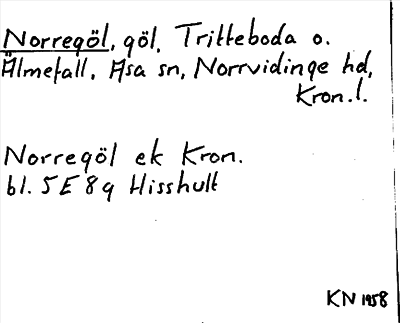 Norregöl, göl, Tritteboda o.
Älmefall, Asa sn, Norrvidinge hd,
Kron.l.
Norregöl ek Kron.
bl. 5E 8g Hisshult
KN 1958